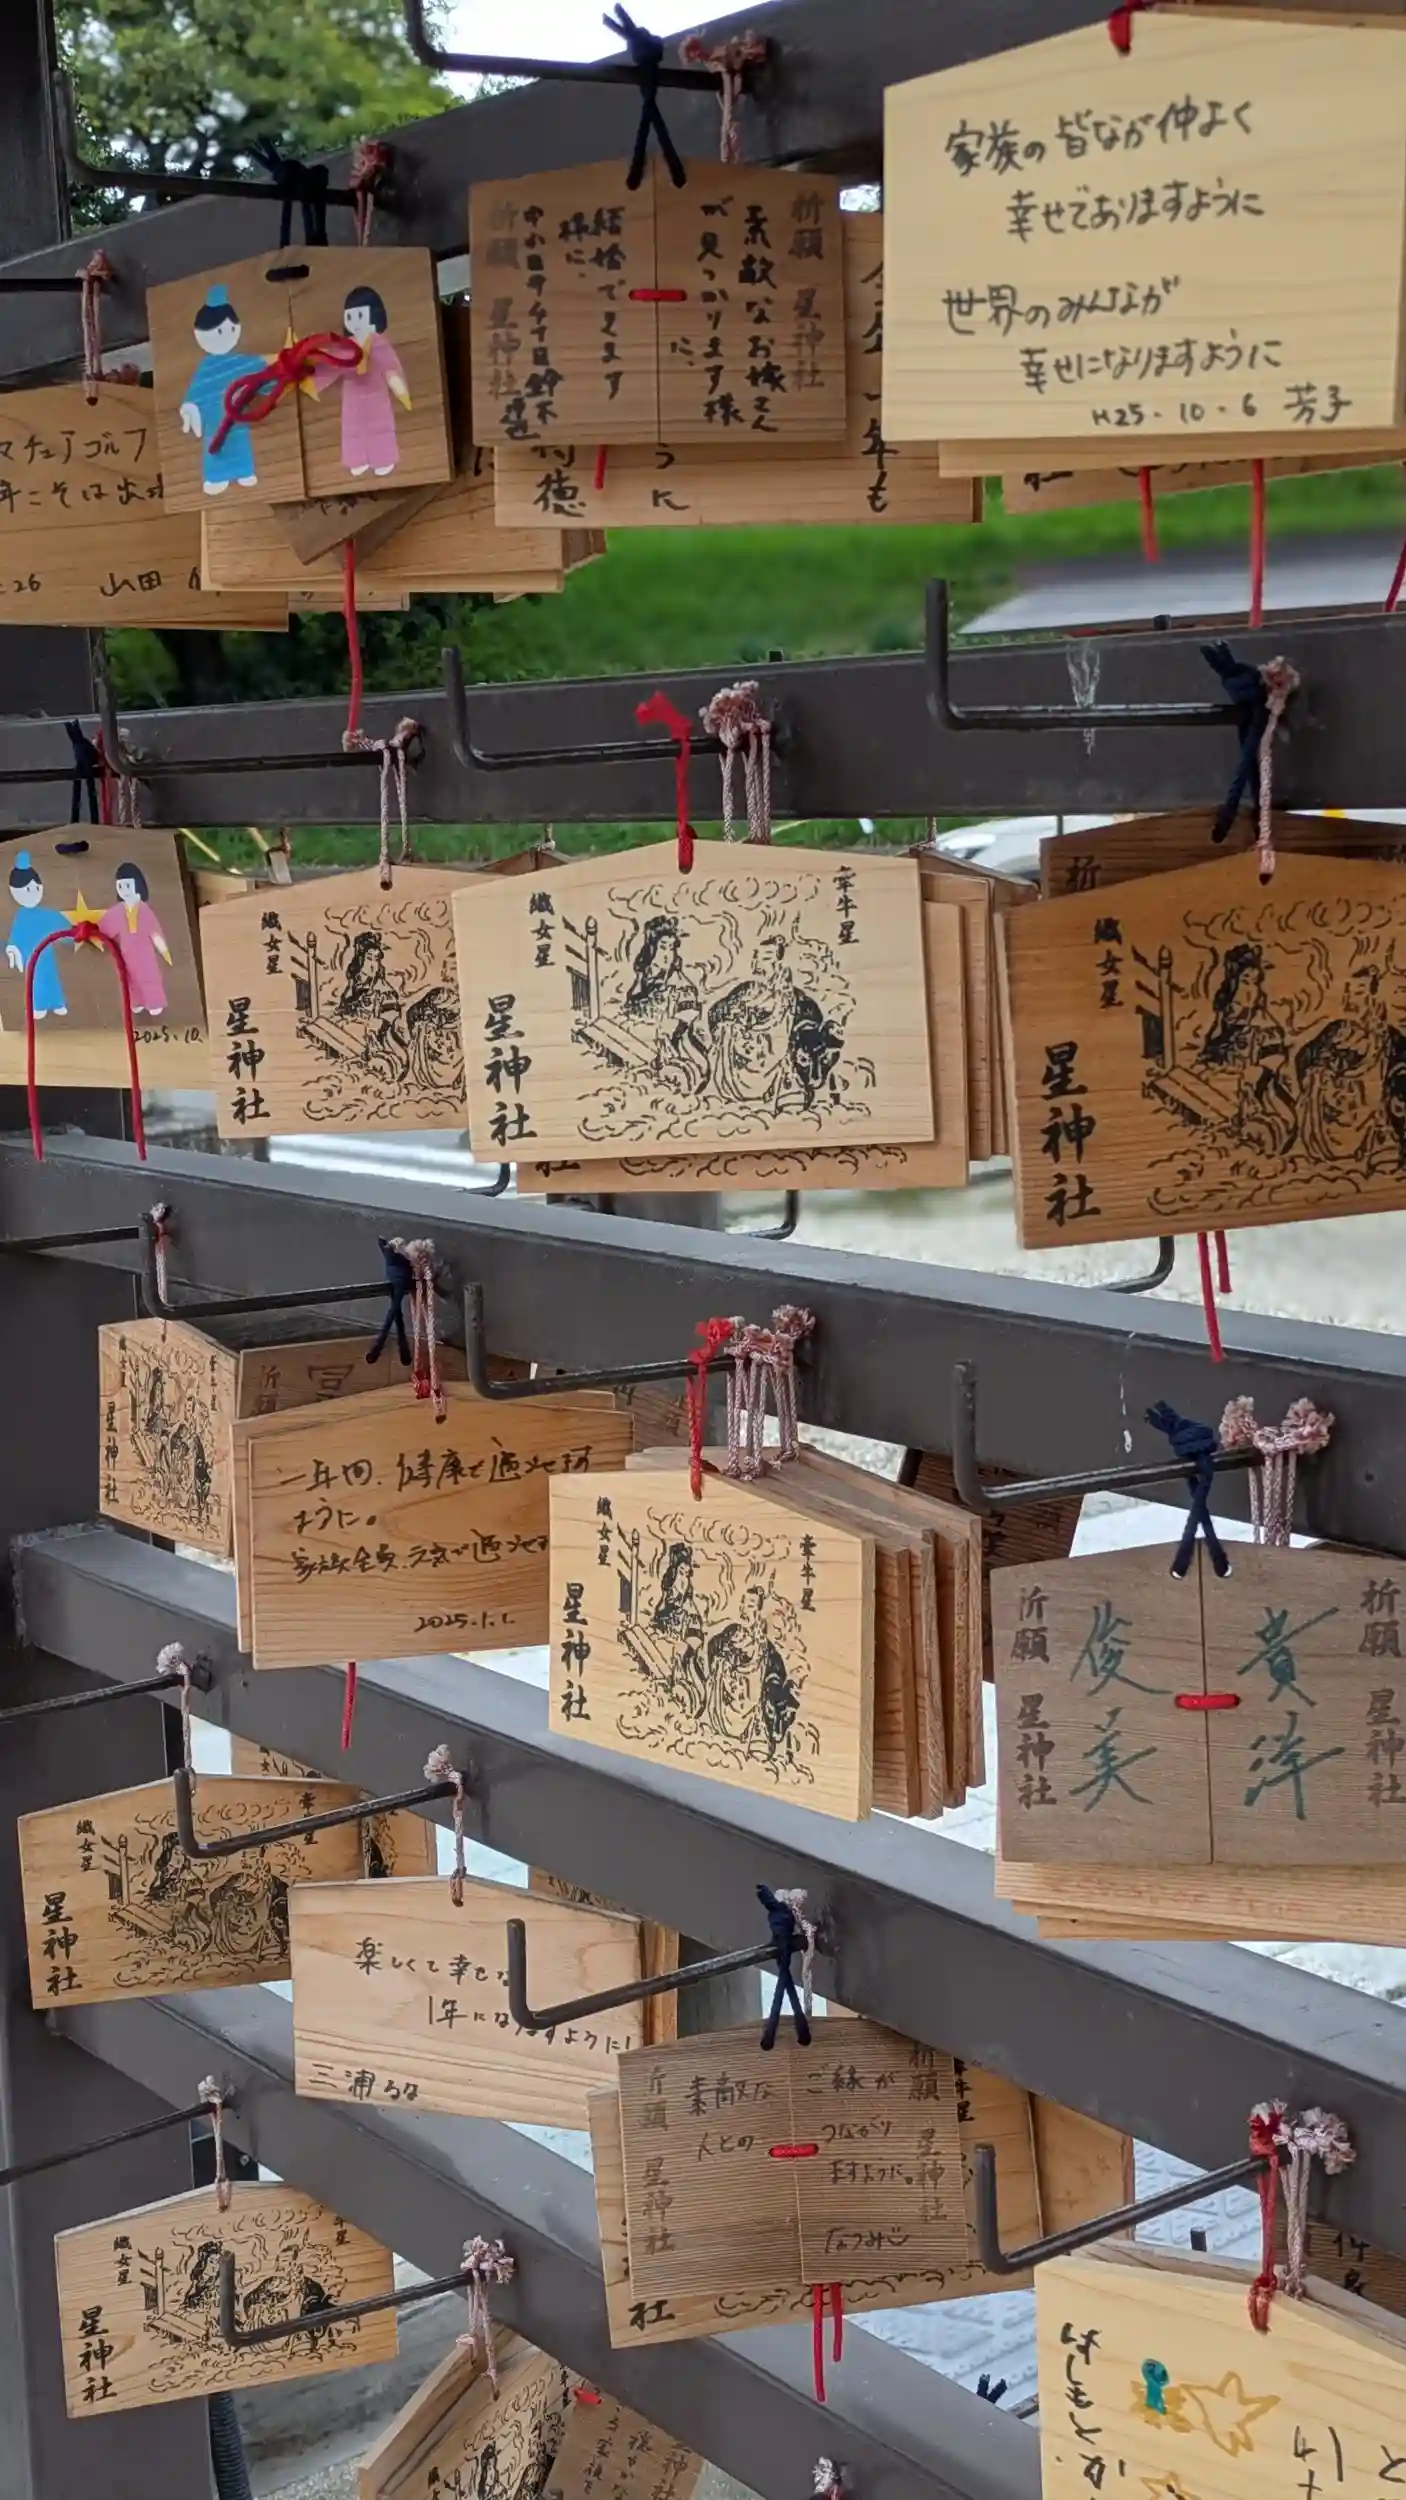 家族の皆なが仲よく
幸せでありますように
世界のみんなが
幸せになりますように
H25.10.6 芳子
祈願 星神社
素敵なお嫁さん
が見つかります様
に、
結婚できます
様に、
祈願 星神社
マチュアゴルフ
年こそは
26 山田
年も
うに
徳
2025.10.
織女星
星神社
織女星
牽牛星
星神社
社
祈
織女星
星神社
織女星
牽牛星
星神社
祈願
一年間、健康で過ごせます
ように。
家族全員、元気で過ごせ
2025.1.1.
織女星
牽牛星
星神社
祈願 星神社
貴洋
俊美
祈願 星神社
織女星
牽牛星
星神社
楽しくて幸せな
1年になりますように!
三浦るな
祈願 星神社
素敵な
人との
ご縁が
つながり
ますように。
なつみ
祈願 星神社
牛星
社
織女星
牽牛星
星神社
神社